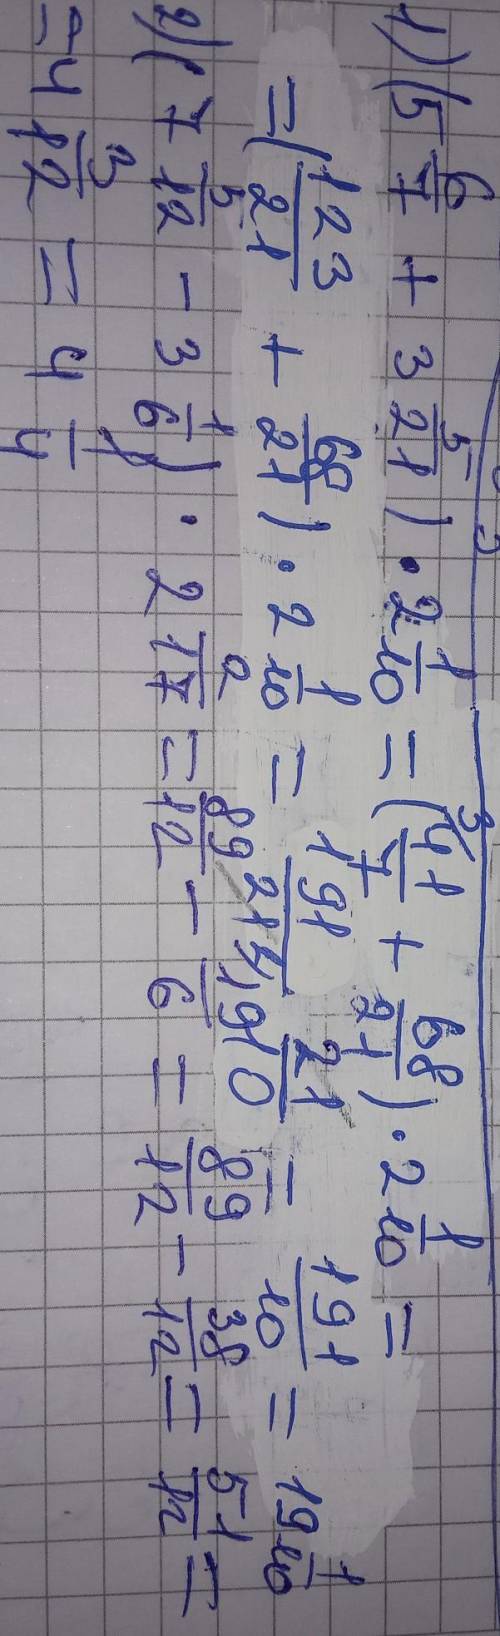 1) (5 6/7 + 3 5/21) · 2 1/10 = (41/7 + 68/21) · 2 1/10 =
= (123/21 + 68/21) · 2 1/10 = 191/21 · 21/10 = 191/10 = 19 1/10
2) (7 5/12 - 3 1/6) · 2 2/17 = 89/12 - 19/6 = 89/12 - 38/12 = 51/12 =
= 4 3/12 = 4 1/4